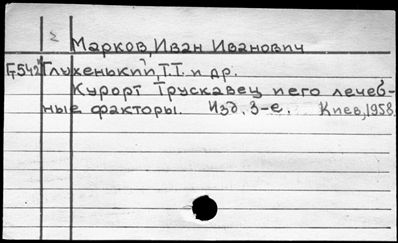 2 Марков, Иван Иванович
Г542 Глухенький, Т.Т. и др.
Курорт Трускавец и его лечеб-
ные факторы. Изд. 3-е. Киев, 1958.